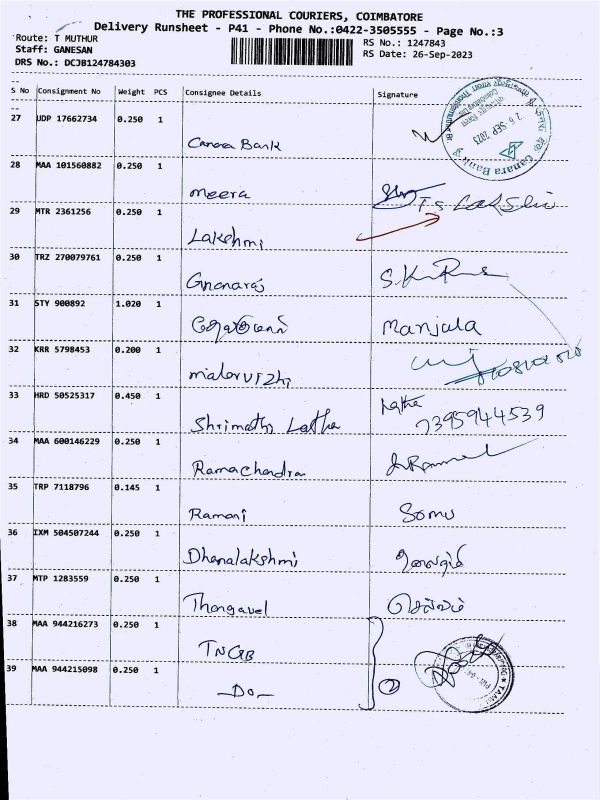 THE PROFESSIONAL COURIERS, COIMBATORE
Delivery Runsheet - P41 - Phone No.:0422-3505555 - Page No.:3
Route: T MUTHUR
RS No.: 1247843
Staff: GANESAN
RS Date: 26-Sep-2023
DRS No.: DCJB124784303
S No Consignment No Weight PCS Consignee Details Signature
27 UDP 17662734 0.250 1
Canara Bank
26 SEP 2023
Canara Bank
28 MAA 101560882 0.250 1
Meera
29 MTR 2361256 0.250 1
Lakshmi
30 TRZ 270079761 0.250 1
Gnanaraj
31 STY 900892 1.020 1
Manjula
32 KRR 5798453 0.200 1
malarvizhi
33 HRD 50525317 0.450 1
Shrimathy Latha
Latha
7395944539
34 MAA 600146229 0.250 1
Ramachandra
35 TRP 7118796 0.145 1
Ramani Somu
36 IXM 504507244 0.250 1
Dhanalakshmi
37 MTP 1283559 0.250 1
Thangavel செல்வம்
38 MAA 944216273 0.250 1
TNGB
39 MAA 944215098 0.250 1
—Do— 2